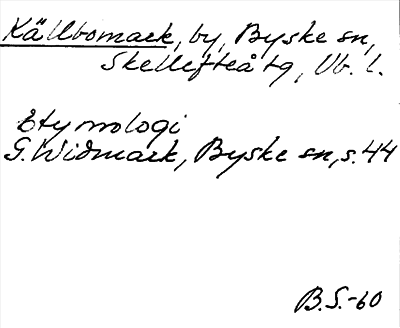 Källbomark, by, Byske sn,
Skellefteå tg, Vb. l.
Etymologi
G. Widmark, Byske sn, s. 44
B.S.-60